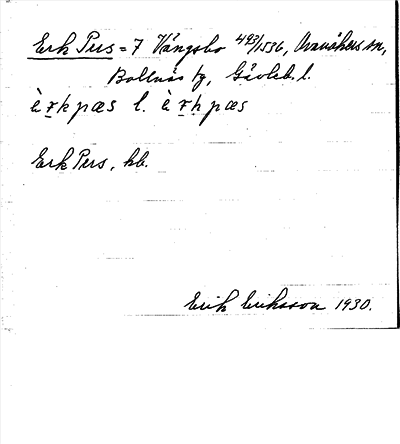 Erk Pers = 7 Vängsbo 493/1536, Ovanåkers sn,
Bollnäs tg, Gävleb. l.
è r̠kpæs l. è r̠kpæs
Erk Pers, kb.
Erik Eriksson 1930.